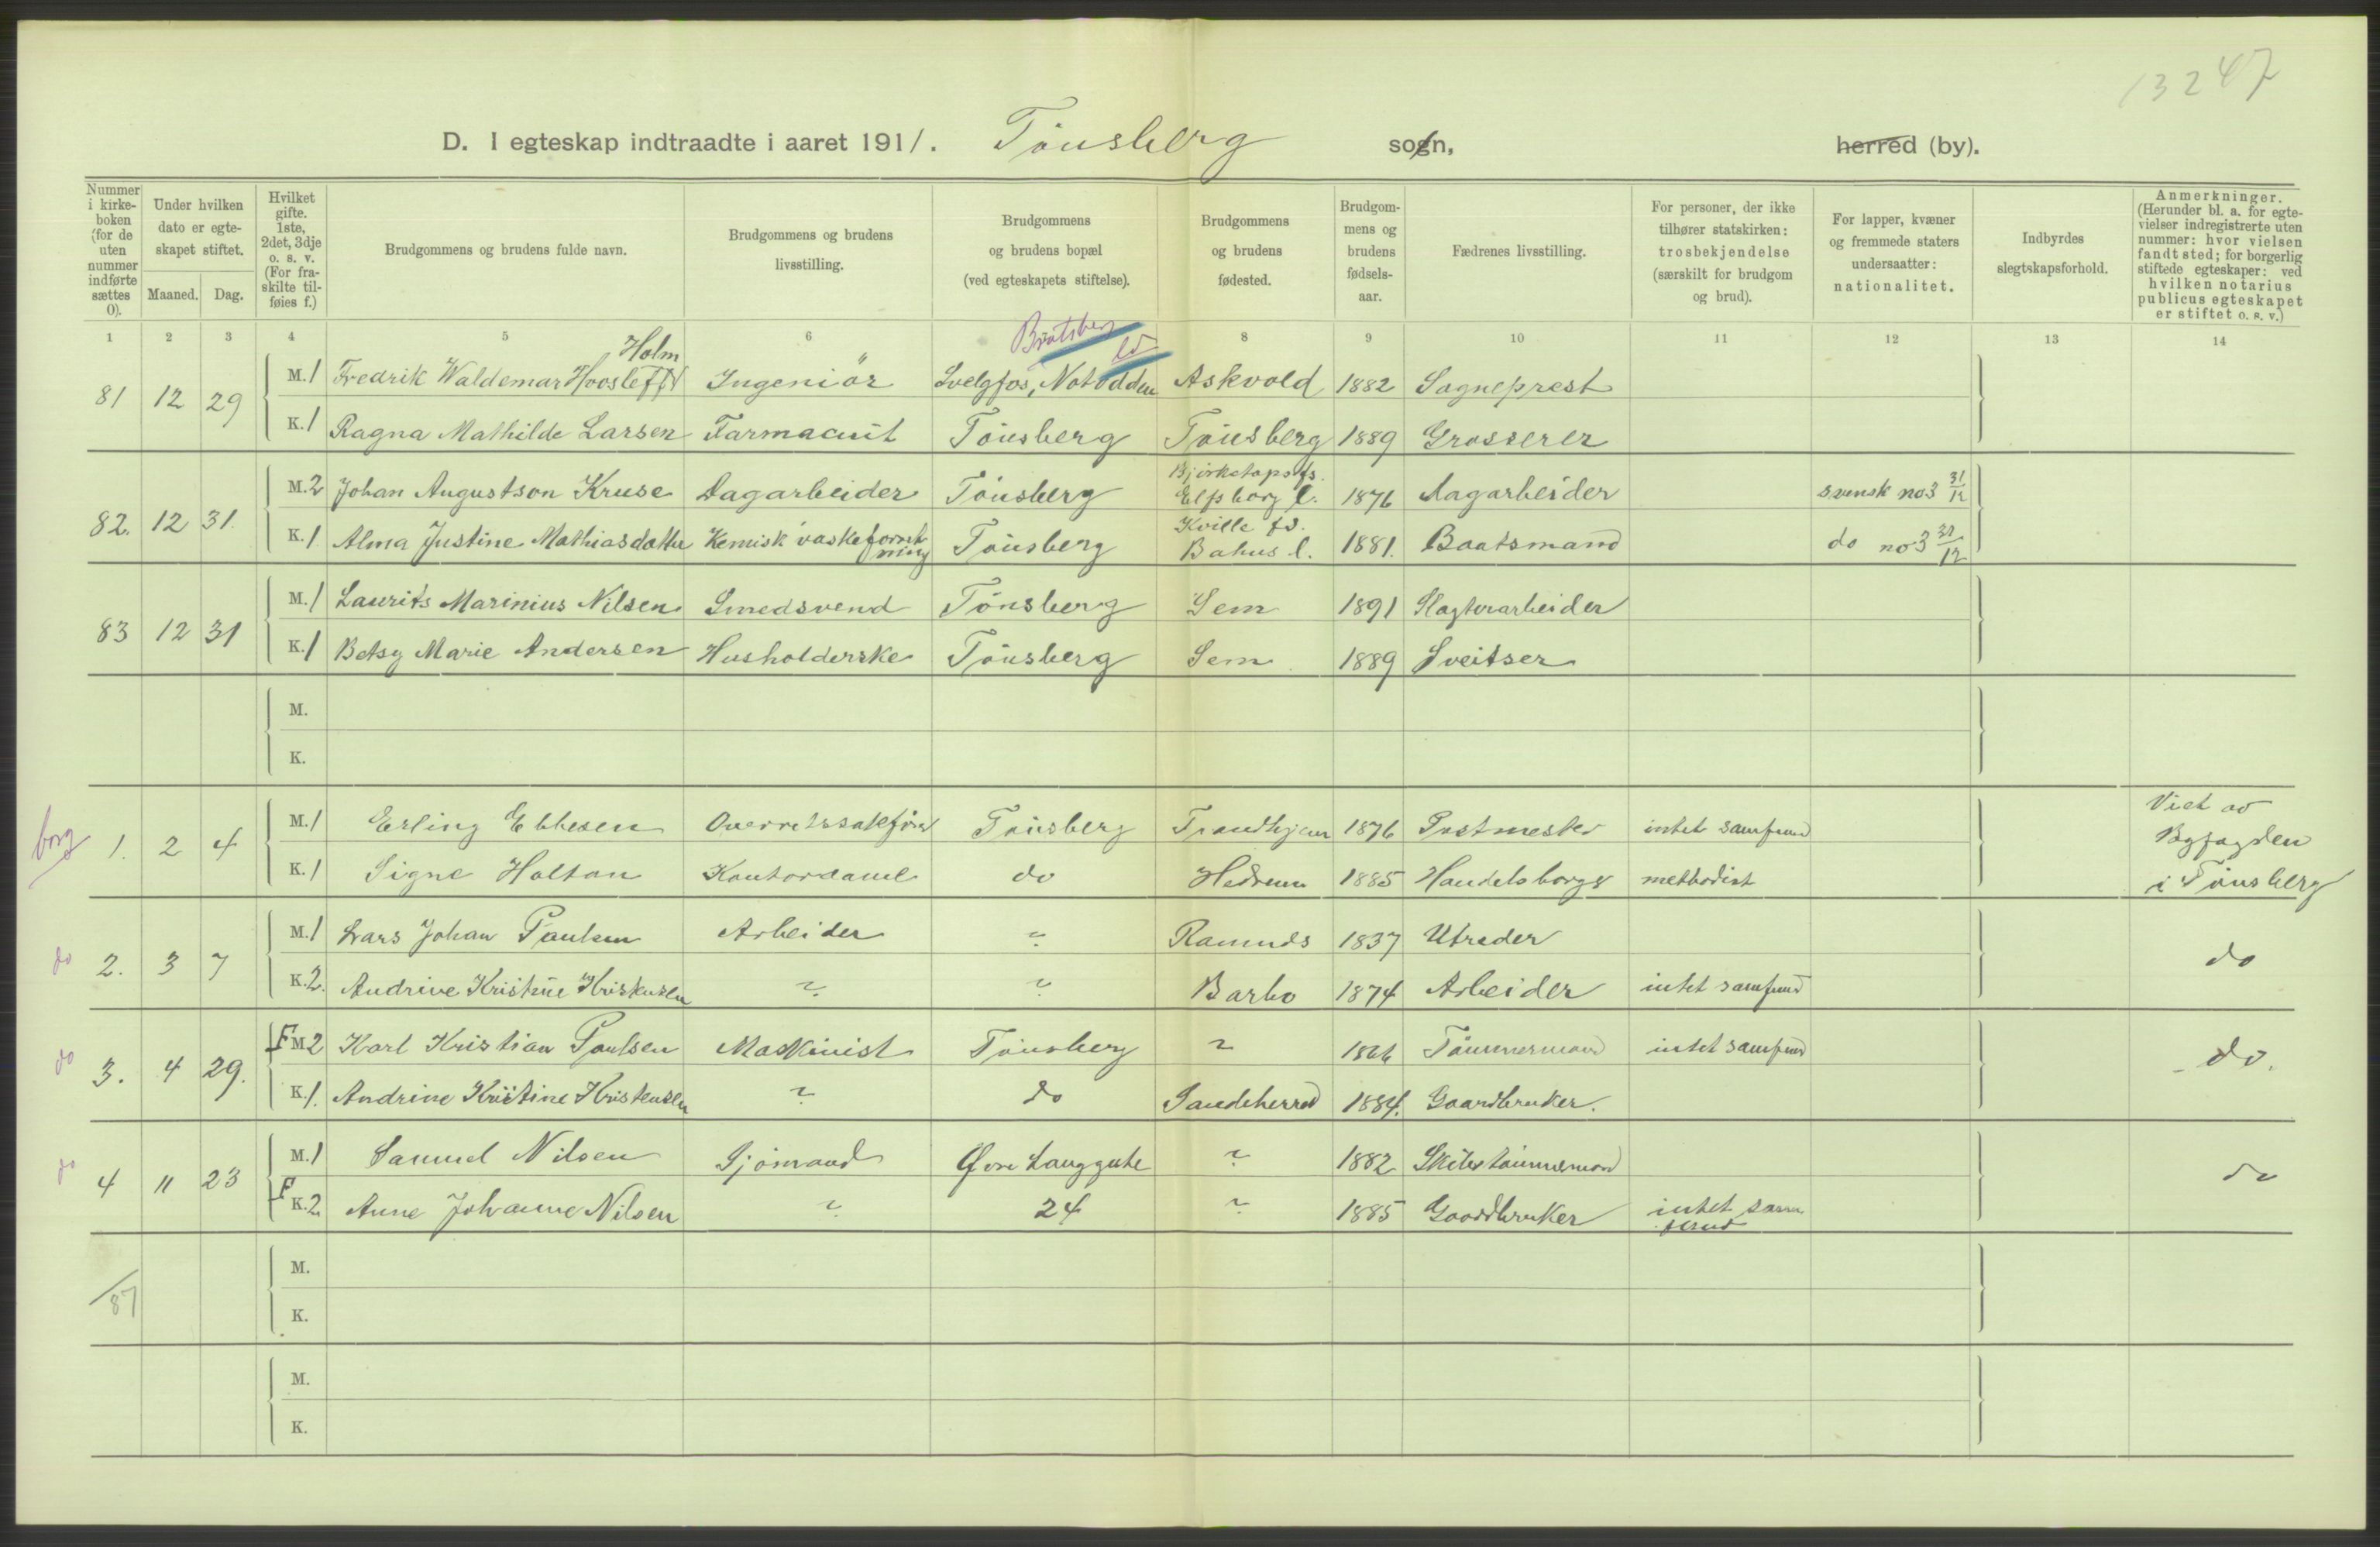 13247
D. I egteskap indtraadte i aaret 1911. Tönsberg sogn, herred (by).
Nummer i kirkeboken (for de uten nummer indførte sættes 0).
Under hvilken dato er egteskapet stiftet.
Maaned. Dag.
Hvilket gifte. 1ste, 2det, 3dje o. s. v. (For fraskilte tilføies f.)
Brudgommens og brudens fulde navn.
Brudgommens og brudens livsstilling.
Brudgommens og brudens bopæl (ved egteskapets stiftelse).
Brudgommens og brudens fødested.
Brudgommens og brudens fødselsaar.
Fædrenes livsstilling.
For personer, der ikke tilhører statskirken: trosbekjendelse (særskilt for brudgom og brud).
For lapper, kvæner og fremmede staters undersaatter: nationalitet.
Indbyrdes slegtskapsforhold.
Anmerkninger. (Herunder bl. a. for egtevielser indregistrerte uten nummer: hvor vielsen fandt sted; for borgerlig stiftede egteskaper: ved hvilken notarius publicus egteskapet er stiftet o. s. v.)
1 2 3 4 5 6 8 9 10 11 12 13 14
Holm Bratsberg
81 12 29 M. 1 Fredrik Waldemar Ingeniör Svelgfos, Notodden Askvold 1882 Sogneprest
K. 1 Ragna Mathilde Larsen Farmaceut Tönsberg Tönsberg 1889 Grosserer
82. 12 31. M. 2 Johan Augustson Kruse Dagarbeider Tönsberg Elfsborg l. 1876 Dagarbeider svensk no 3 31/12
K. 1 Alma Justine Mathiasdotter Kemisk vaskeforretning Tönsberg Kville fs. Bahus l. 1881. Baatsmand do no 3 31/12
83 12 31 M. 1 Laurits Marinius Nilsen Smedsvend Tönsberg Sem 1891 Slagterarbeider
K. 1 Betsy Marie Andersen Husholderske Tönsberg Sem 1889 Sveitser
M.
K.
borg 1. 2 4 M. 1 Erling Ebbesen Overretssakfører Tönsberg Trondhjem 1876 Postmester intet samfund Viet av Byfogden i Tönsberg
K. 1 Signe Holtan Kontordame do Hedrum 1885 Handelsborger methodist
do 2. 3 7 M. 1 Lars Johan Paulsen Arbeider ? Ramnes 1837 do
K. 2. Andrine Kristine Kristensen ? ? Barbo 1874 Arbeider intet samfund
do 3. 4 29. F M 2 Karl Kristian Paulsen Maskinist Tönsberg ? 1866 Tömmermand intet samfund do.
K. 1. Andrine Kristine Kristensen ? do Sandeherred 1884. Gaardbruker.
do 4 11 23 M. 1 Samuel Nilsen Sjömand Øvre Langgate ? 1882 Skibstömmermand do
F K. 2 Anne Johanne Nilsen ? 24 ? 1885 Gaardbruker intet samfund
M.
/87
K.
M.
K.